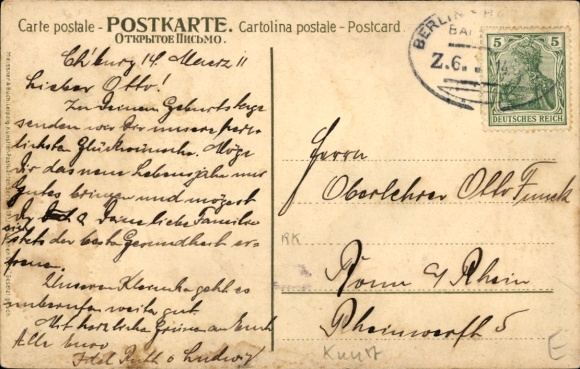 Carte postale – POSTKARTE. Cartolina postale – Postcard
ОТКРЫТОЕ ПИСЬМО.
BERLIN
BA
Z.6.
5 5
DEUTSCHES REICH
Ch'burg 14. Maerz 11
Lieber Otto!
Zu Deinem Geburtstage
senden wir Dir unsere herz-
lichsten Glückwünsche. Möge
Dir das neue Lebensjahr nur
Gutes bringen und mögest
Du & Deine liebe Familie
sich
stets der besten Gesundheit er-
freuen.
Unserem Kleinen geht es
unberufen weiter gut.
Mit herzlichen Grüssen an Euch
Alle
Ruth & Ludwig
Herrn
Oberlehrer Otto Funck
Bonn a/Rhein
Rheinwerft 5
RK
Kunst
E